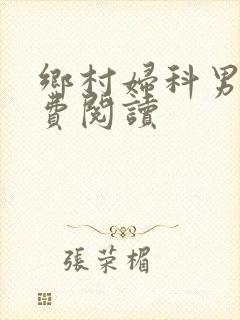 鄉村婦科男
費閱讀
張荣楣